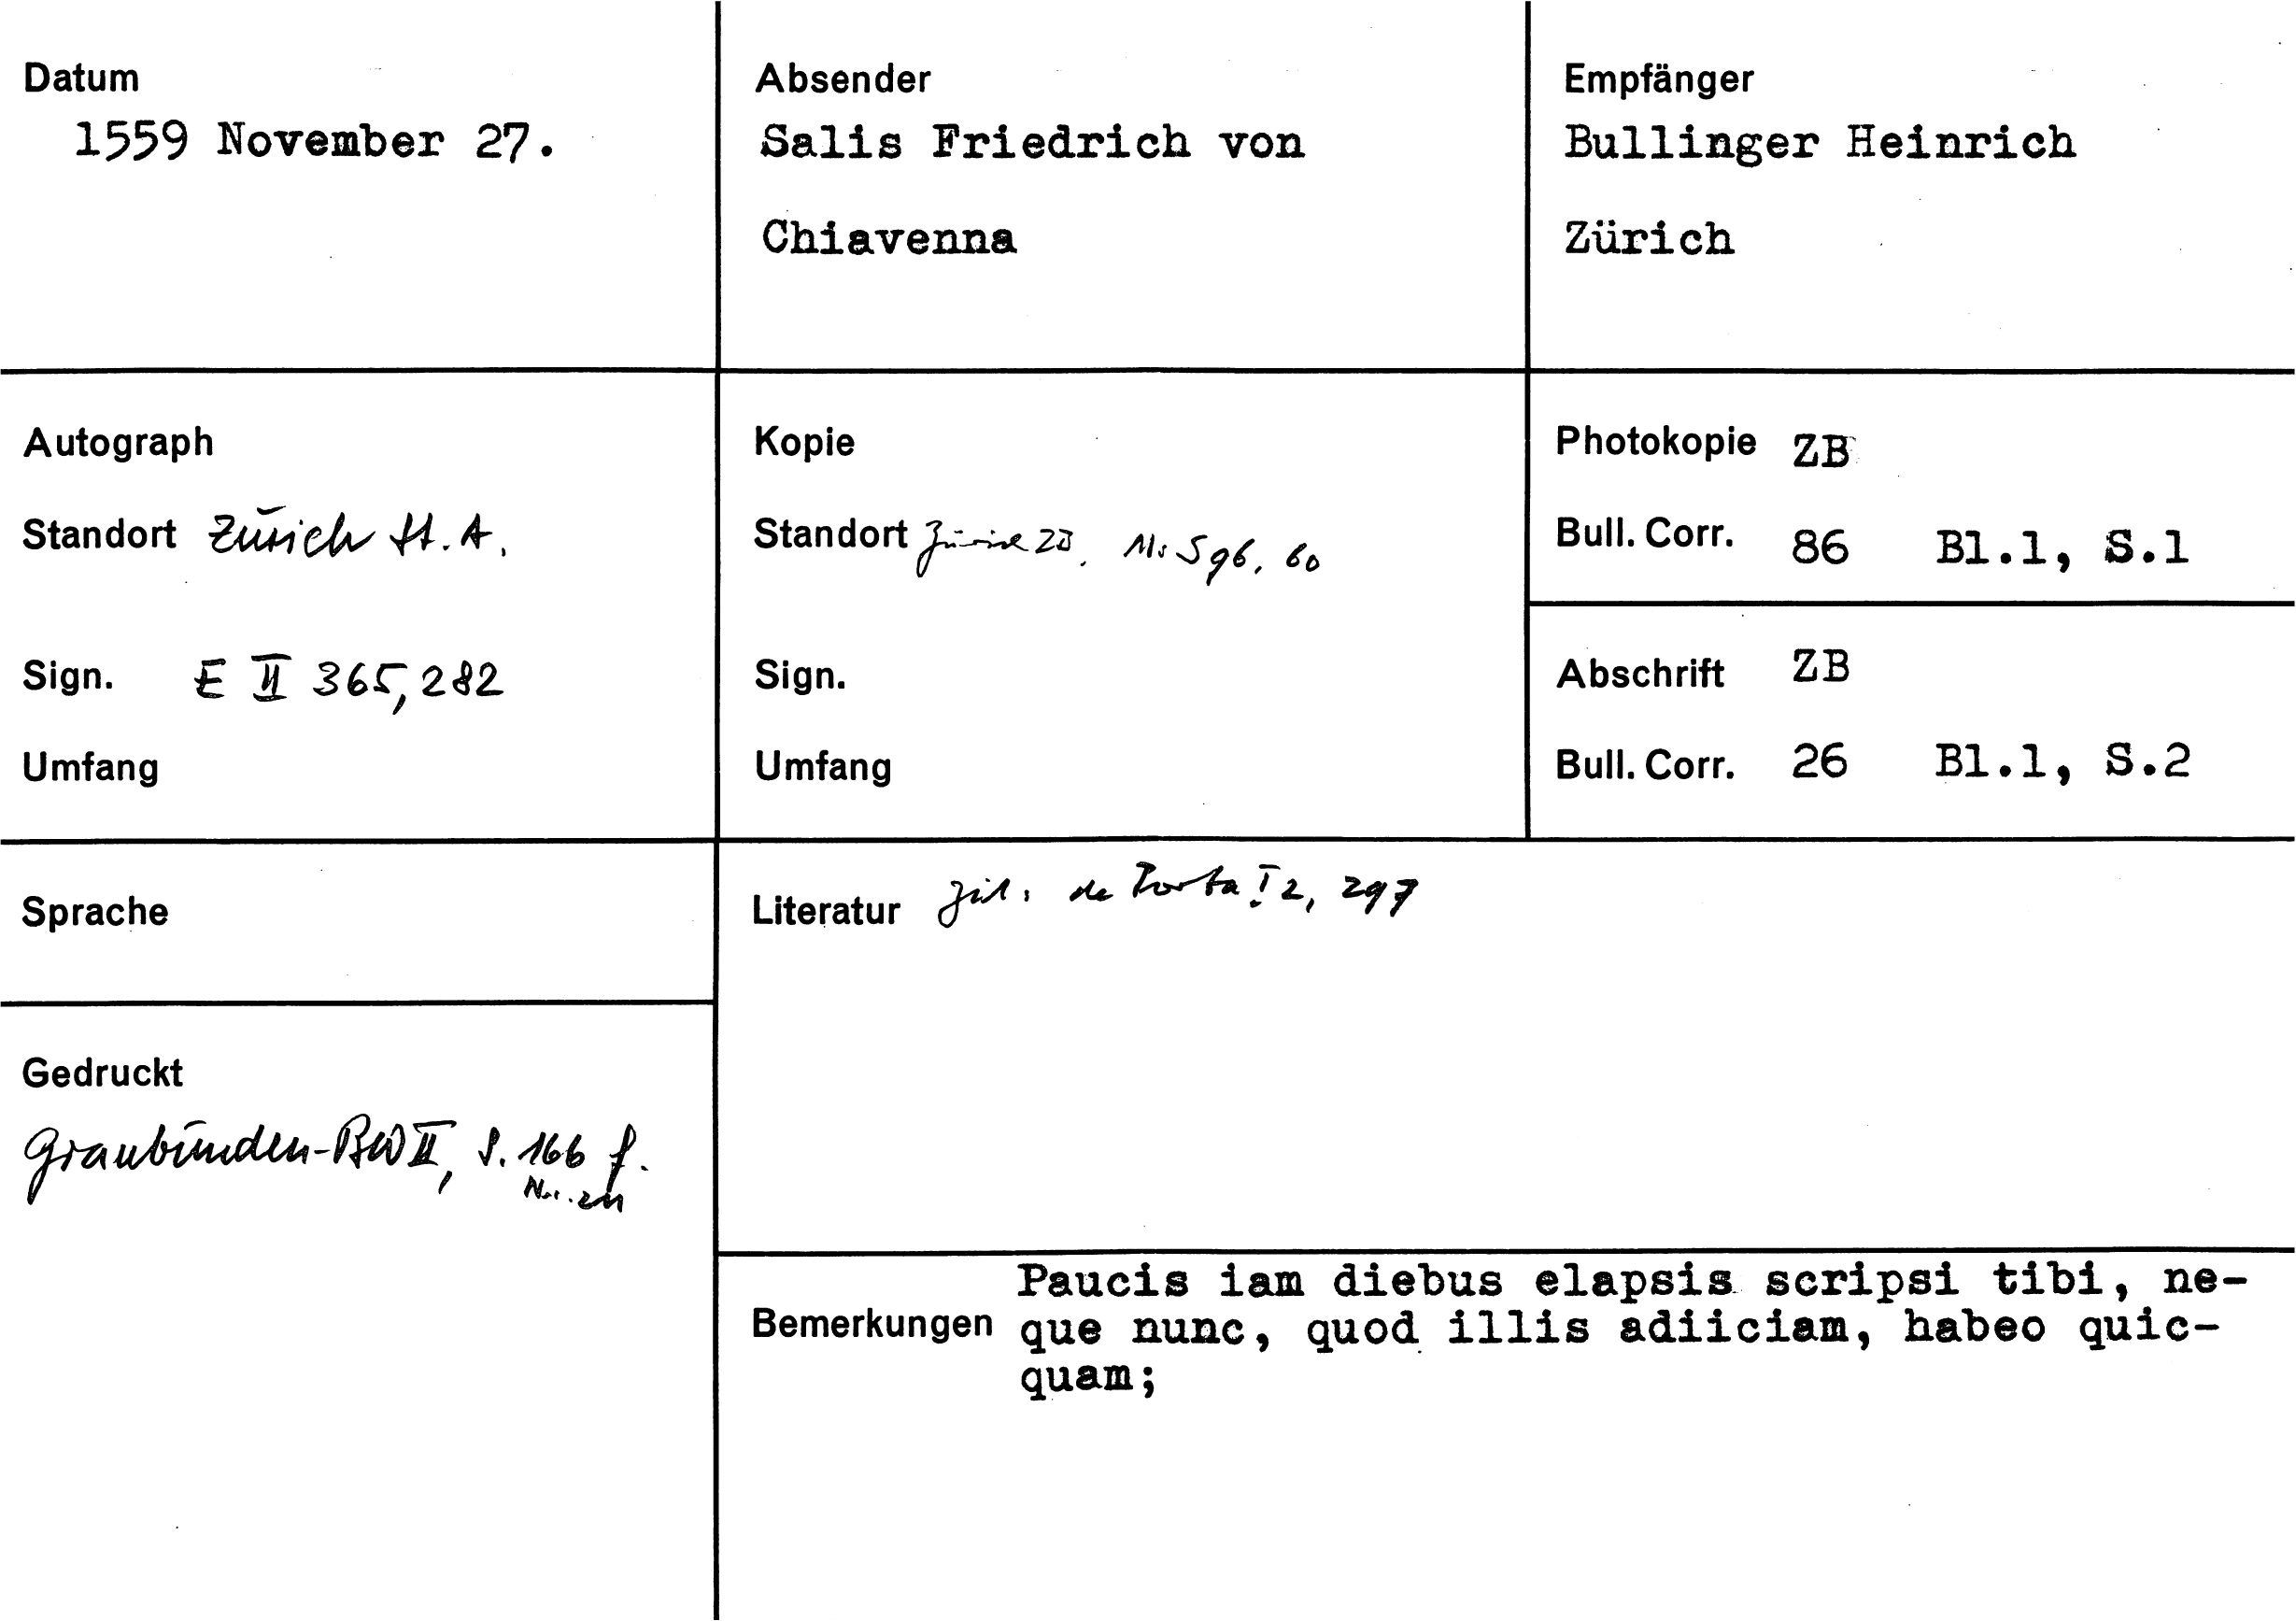 Datum
1559 November 27.
Absender
Salis Friedrich von
Chiavenna
Empfänger
Bullinger Heinrich
Zürich
Autograph
Standort Zürich St.A.
Sign. E II 365,282
Umfang
Kopie
Standort Zürich ZB. Ms S 96, 60
Sign.
Umfang
Photokopie ZB
Bull. Corr. 86 Bl.1, S.1
Abschrift ZB
Bull. Corr. 26 Bl.1, S.2
Sprache
Literatur Zit. de Porta I 2, 297
Gedruckt
Graubünden-BW II, S. 166 f.
Nr.
Bemerkungen
Paucis iam diebus elapsis scripsi tibi, ne-
que nunc, quod illis adiiciam, habeo quic-
quam;